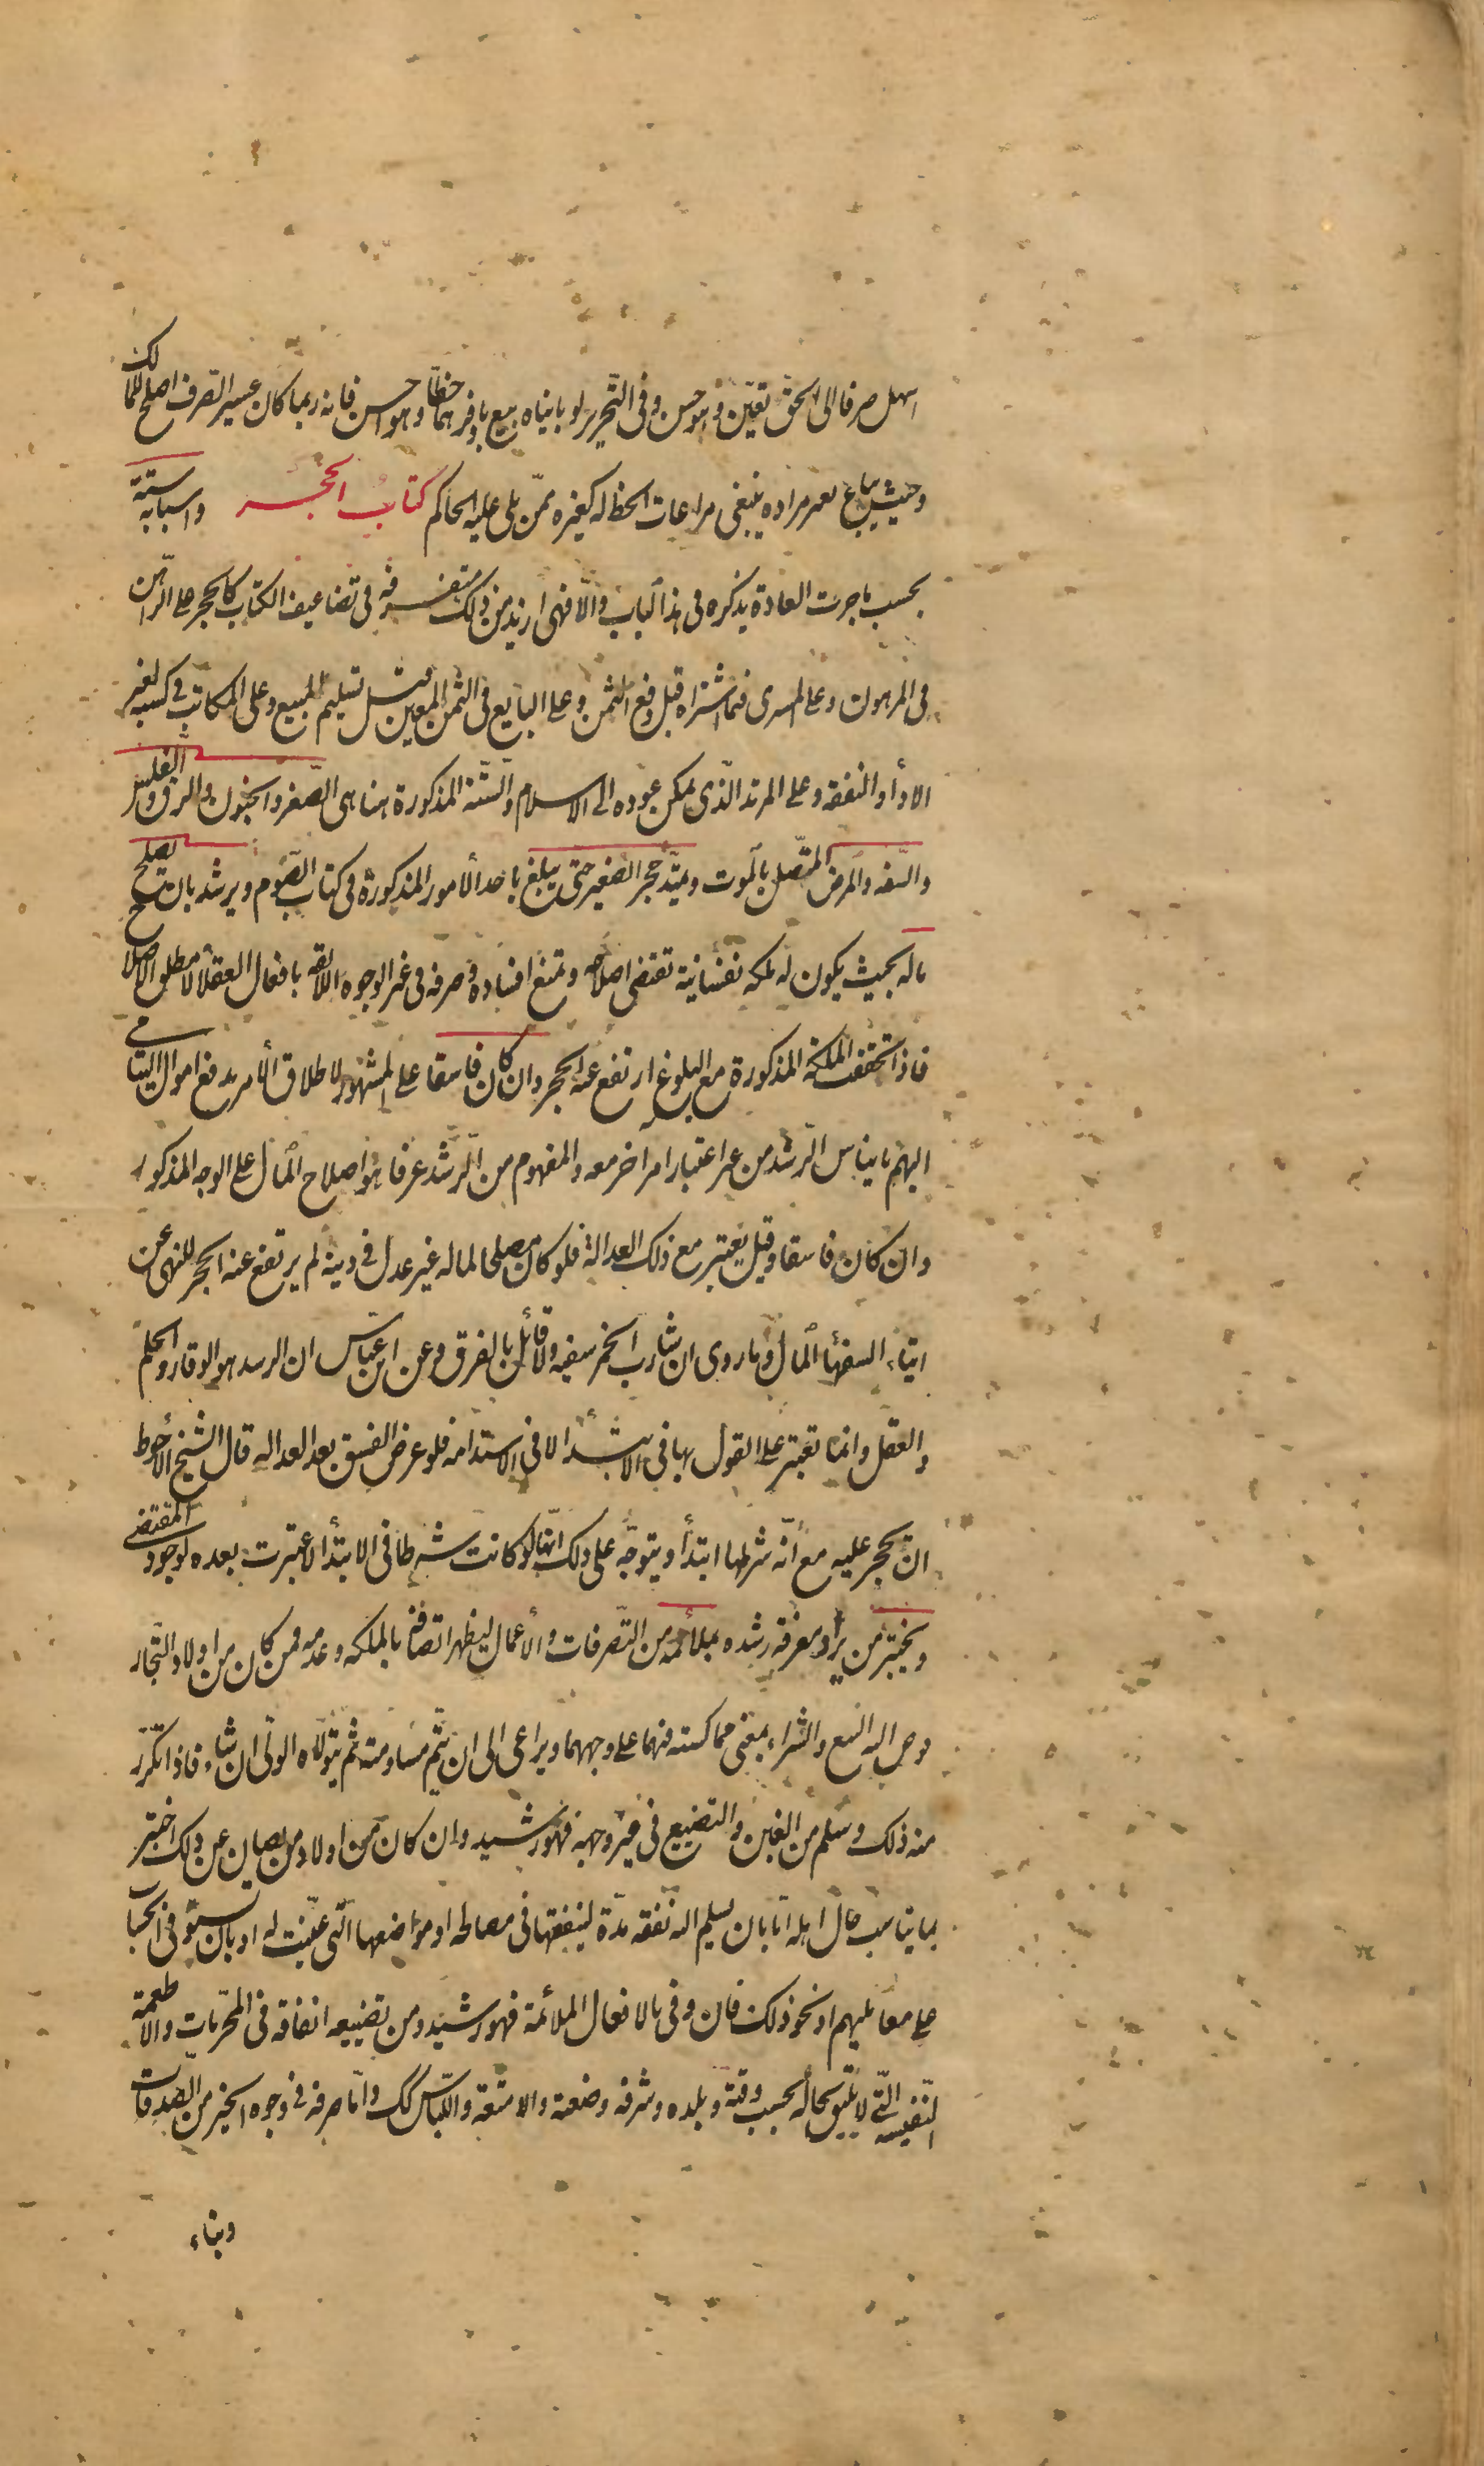 اسهل صرفا الى الحق تعين وهو حسن وفى التحرير لو باينياه بيع باوفرهما حظا وهو احسن فانه ربما كان عسير الصرف اصلح للمالك
وحيث يباع بغير مراده ينبغى مراعات الحظ له كغيره ممن يلى عليه الحاكم كتاب الحجر واسبابه ستة
بحسب ما جرت العادة بذكره فى هذا الباب والا فهى ازيد من ذلك متفرقه فى تضاعيف الكتاب كالحجر على الراهن
فى المرهون وعلى المسرى فيما اشتراه قبل دفع الثمن وعلى البايع فى الثمن المعين قبل تسليم المبيع وعلى المكاتب فى كسبه لغير
الاداء والنفقه وعلى المرتد الذى يمكن عوده الى الاسلام والستة المذكورة هنا هى الصغر والجنون والرق والفلس
والسفه والمرض المتصل بالموت ويمتد حجر الصغير حتى يبلغ باحد الامور المذكورة فى كتاب الصوم ويرشد بان يصلح
ماله بحيث يكون له ملكه نفسانية تقتضى اصلاحه وتمنع افساده وصرفه فى غير الوجوه اللائقه بافعال العقلاء لا مطلق الاصلاح
فاذا تحققت الملكة المذكورة مع البلوغ ارتفع عنه الحجر وان كان فاسقا على المشهور لاطلاق الامر بدفع اموال اليتامى
اليهم بايناس الرشد من غير اعتبار امر اخر معه والمفهوم من الرشد عرفا هو اصلاح المال على الوجه المذكور
وان كان فاسقا وقيل يعتبر مع ذلك العدالة فلو كان مصلحا لماله غير عدل فى دينه لم يرتفع عنه الحجر للنهى عن
ايتاء السفهاء المال وما روى ان شارب الخمر سفيه ولا قائل بالفرق وعن ابن عباس ان الرسد هو الوقار والحلم
والعقل وانما تعتبر على القول بها فى الابتداء لا فى الاستدامه فلو عرض الفسق بعد العداله قال الشيخ الاحوط
ان يحجر عليه مع انه شرطها ابتداء ويتوجه على ذلك انها لو كانت شرطا فى الابتداء لاعتبرت بعده لوجود المقتضى
ويختبر من يراد معرفة رشده بملائمه من التصرفات والاعمال ليظهر اتصافه بالملكه وعدمه فمن كان من اولاد التجار
فوض اليه البيع والشراء بمعنى مماكسته فيهما على وجههما ويراعى الى ان يتم مساومته ثم يتولاه الولى ان شاء فاذا تكرر
منه ذلك وسلم من الغبن والتضييع فى غير وجهه فهو رشيد وان كان من اولاد من يصان عن ذلك اختبر
بما يناسب حال اهله اما بان يسلم اليه نفقه مدة لينفقها فى مصالحه او مواضعها التى عينت له او بان يستوفى الحساب
على معامليهم او نحو ذلك فان وفى بالافعال الملائمة فهو رشيد ومن تضييعه انفاقه فى المحرمات والاطعمة
النفيسه التى لا يليق بحاله بحسب وقته وبلده وشرفه وضعته والامتعة واللباس كك واما صرفه فى وجوه الخير من الصدقات
وبناء